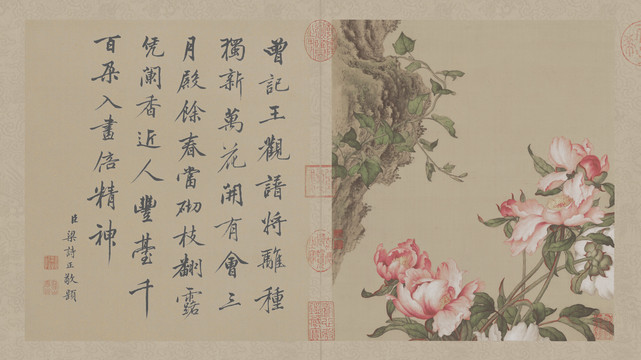 曾記王觀譜將離種
獨新萬花開有會三
月殿餘春當砌枝翻露
凭闌香近人豐臺千
百朶入畫倍精神
臣梁詩正敬題